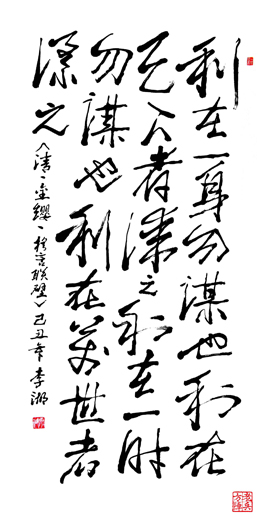 利在一身勿谋也利在
天下者谋之利在一时
勿谋也利在万世者
谋之
《清·金缨·格言联璧》己丑年李湖